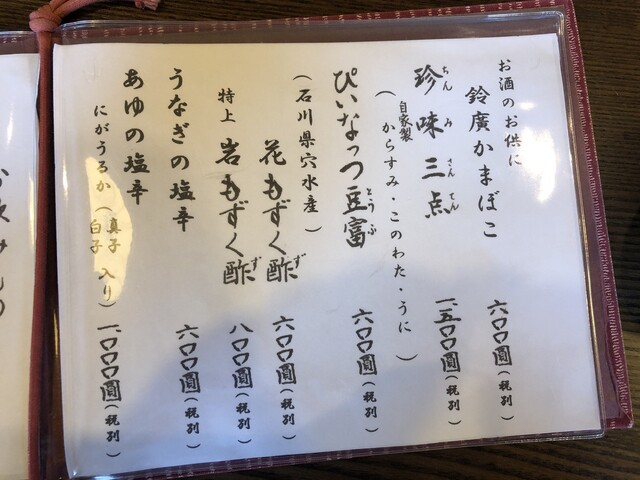 お酒のお供に
鈴廣かまぼこ 六〇〇圓(税別)
珍味三点 一、五〇〇圓(税別)
ちん み さん てん
(自家製 からすみ・このわた・うに)
ぴいなっつ豆富 六〇〇圓(税別)
とうふ
(石川県穴水産)
花もずく酢 六〇〇圓(税別)
ず
特上 岩もずく酢 八〇〇圓(税別)
ず
うなぎの塩辛 六〇〇圓(税別)
あゆの塩辛
にがうるか(真子 白子 入り) 一、〇〇〇圓(税別)